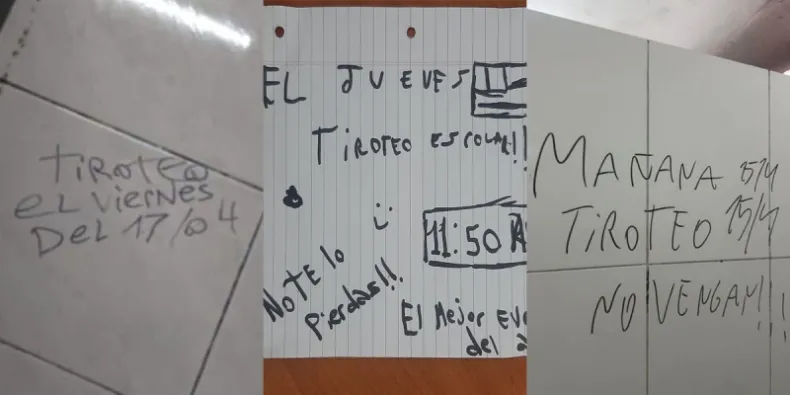 TIROTEO
EL VIERNES
DEL 17/04
EL JUEVES
TIROTEO ESCOLAR!!
11:50 A
NO TE lo
pierdas!!
El Mejor Eve
del a
MAÑANA 15/4
TIROTEO 15/4
NO VENGAN!!!